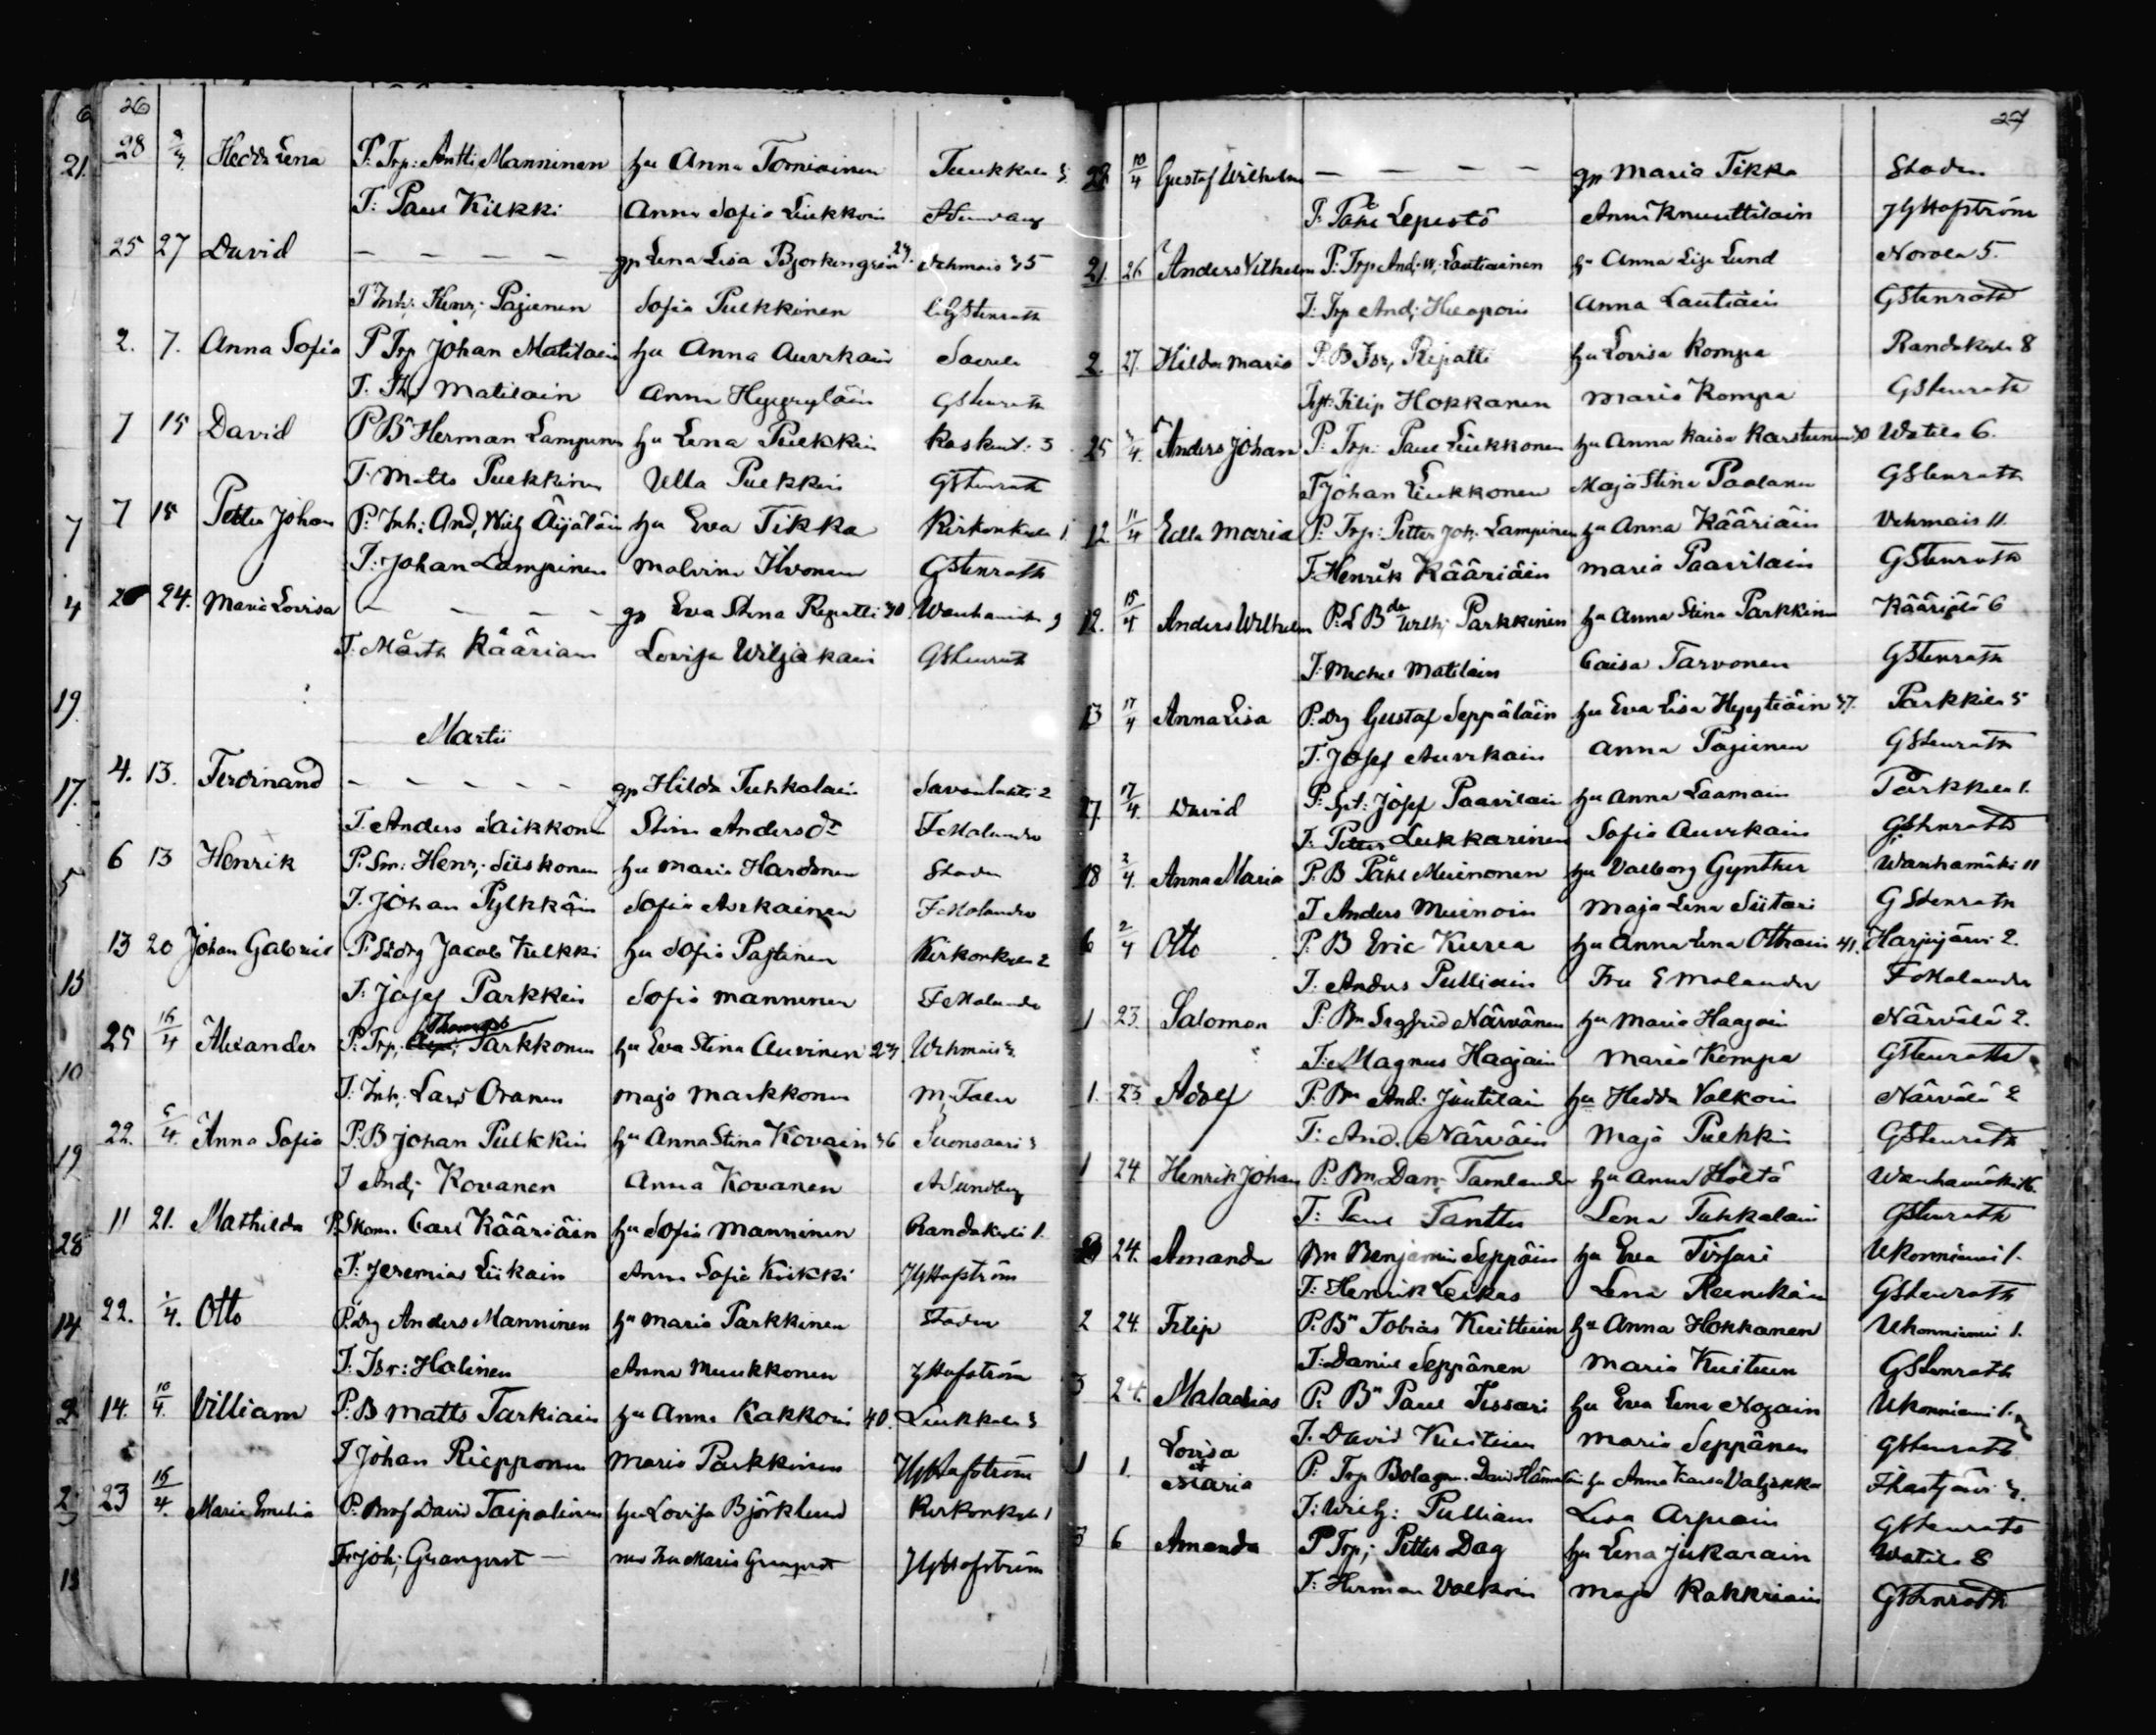 6 26
21. 28 Hedda Lena P: Trp: Antti Manninen hu Anna Torniainen
T: Paul Kukki Anna Sofia Liukkoin
25 27 David — — — — gp Lena Lisa Bjorkengren 27. Vehmais 35
T Inh: Henr; Pajunen Sofia Pulkkinen GStenroth
2. 7. Anna Sofia P Trp Johan Matilain hu Anna Auvrkain
T. Matilain Anna GStenroth
7 15 David P Bn Herman Lampinen hu Lena Pulkkin 3
T: Matts Pulkkinen Ulla Pulkkin GStenroth
7 7 15 Petter Johan P: Inh: And, Wilh Äijäläin hu Eva Tikka Kirkonkylä 1
T: Johan Lampinen Malvina Ihvonen GStenroth
4 24. Maria Lovisa — — — — gp Eva Stina Repatti 30. 9
T: Mårth Kääriain Lovisa Wiljakain GStenroth
19.
Martii
17. 4. 13. Ferdinand — — — — — gp Hilda Tuhkalain Savonlahti 2
T. Anders Laikkonen Stina Andersdr F Molander
5 6 13 Henrik P. Sm: Henr; Siiskonen hu Maria Hardonen Staden
T. Johan Pylkkäin Sofia Askainen F Molander
13 20 Johan Gabriel P: Jacob Kulkki hu Sofia Pajtinen Kirkonkylä 2
13 T: Josef Parkkin Sofia Manninen F Molander
25 16/4 Alexander P: Trp; Thomas Parkkonen hu Eva Stina Auvinen 27. Vehmais 3.
10 T: Inh: Lars Oranen Maja Markkonen M. Falen
22. 5/4. Anna Sofia P: B Johan Pulkkin hu Anna Stina Kovain 36 Suonsaari 3
19 T And; Kovanen Anna Kovanen A Sundberg
11 21. Mathilda P. Skom. Carl Kääriäin hu Sofia Manninen Randakylä 1.
28 T: Jeremias Liikain Anna Sofia Kukki JGHofström
22. 1/4. Otto P. Drg Anders Manninen hu Maria Parkkinen Staden
14 T: Isr: Halinen Anna Muukkonen JHofström
2 14. 10/4. Villiam P: B Matts Tarkiain hu Anna Kakkoin 40. 3
T Johan Riepponen Maria Parkkinen JGHofström
2 23 16/4. Maria Emelia P: David Taipalinen hu Lovisa Björklund Kirkonkylä 1
13 T: Joh; Granqvist — Maria Granqvist JGHofström
27
28 10/4 Gustaf Wilhelm — — — — gp Maria Tikka Staden
T: Påhl Lepistö Anna Knuuttilain JGHofström
21. 26 Anders Vilhelm P: Trp And: W; Lautiainen hu Anna Lisa Lund Norola 5.
T: Trp And; Anna Lautiain GStenroth
2. 27. Hilda Maria P. B Isr, Repatti hu Lovisa Kompa Randakylä 8
Filip Hokkanen Maria Kompa GStenroth
25 Anders Johan P: Trp: Paul Liukkonen hu Anna Kaisa Karstunen 30 Watila 6.
T Johan Liukkonen Maja Stina Paalanen GStenroth
12. 11/4 Edla Maria P: Trp: Petter Joh. Lampinen hu Anna Kääriäin Vehmais 11.
T: Henrik Kääriäin Maria Paavilain GStenroth
12. 15/4 Anders Wilhelm Wilh; Parkkinen hu Anna Stina Parkkinen 6
T: Michel Matilain Caisa Tarvonen GStenroth
13 17/4 Anna Lisa P: Drg Gustaf Seppäläin hu Eva Lisa Hyytiäin 37. Parkkila 5
T. Josef Auvrkain Anna Pajunen GStenroth
27. 17/4. David P: Josef Paavilain hu Anna Laamain Parkkila 1.
T: Petter Lukkarinen Sofia Auvrkain GStenroth
18 2/4. Anna Maria P: B Påhl Muinonen hu Valborg Gynther Wanhamäki 11
T Anders Muinoin Maja Lena Siitari GStenroth
6 2/4 Otto P: B Eric Kurea hu Anna Lena Ottoain 41. Harjujärvi 2.
T: Anders Pulliain Fru E Molander F Molander
1 23. Salomon P: Bn Sigfrid Närvänen hu Maria Haajain Närvälä 2.
T: Magnus Haajain Maria Kompa GStenroth
1. 23. Adolf P: Bn And: Juutilain hu Hedda Valkoin Närvälä 2
T: And. Närväin Maja Pulkkin GStenroth
1 24 Henrik Johan P: Bn Dan; hu Anna Höltö Wanhamäki 16.
T: Paul Tanttu Lena Tuhkalain GStenroth
24. Amanda Bn Benjamin Seppäin hu Eva Tissari Ukonniemi 1.
T: Henrik Leikas Lena GStenroth
2 24. Filip P: Bn Tobias Kuittuin hu Anna Hokkanen Ukonniemi 1.
T: Daniel Seppänen Maria Kuituen GStenroth
3 24. Malachias P. Bn Paul Tissari hu Eva Lena Nojain Ukonniemi 1.
T. David Kuituen Maria Seppänen GStenroth
1 1. Lovisa et Maria P: Trp Bolagm. David hu Anna Kaisa Valjakka 3.
T: Wilh: Pulliain Lisa Arpiain GStenroth
3 6 Amanda P Trp; Petter Dag hu Lena Jukarain Watila 8
T: Herman Valkoin Maja Kakkriain GStenroth